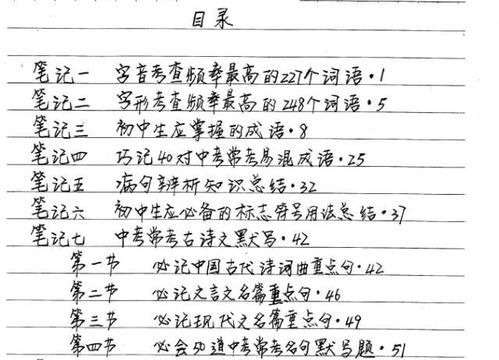 目录
笔记一 字音考查频率最高的227个词语·1
笔记二 字形考查频率最高的248个词语·5
笔记三 初中生应掌握的成语·8
笔记四 巧记40对中考常考易混成语·25
笔记五 病句辨析知识总结·32
笔记六 初中生应必备的标志符号用法总结·37
笔记七 中考常考古诗文默写·42
第一节 必记中国古代诗词曲重点句·42
第二节 必记文言文名篇重点句·46
第三节 必记现代文名篇重点句·49
第四节 必会50道中考常考名句默写题·51